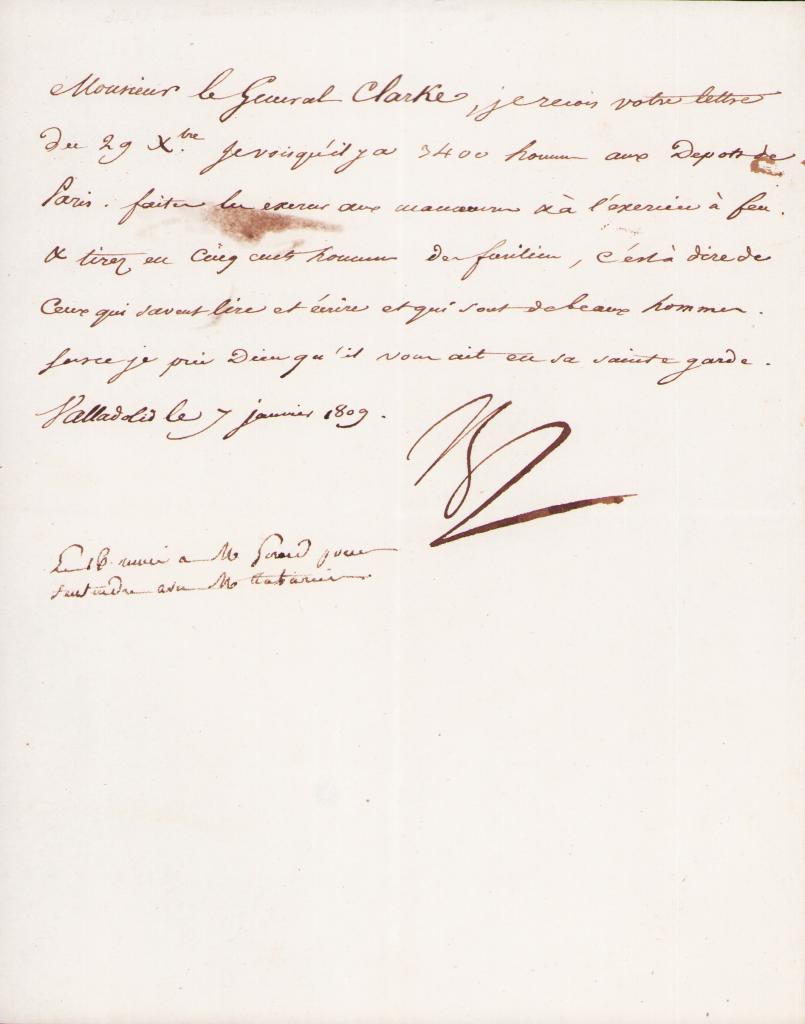 Monsieur le General Clarke, je recois votre lettre
du 29 Xbre. Je vois qu'il y a 3400 hommes aux Depots de
Paris. faites les exercer aux manœuvres & à l'exercice à feu.
& tirez en cinq cents hommes de fusiliers, c'est à dire de
Ceux qui savent lire et écrire et qui sont de beaux hommes.
sur ce je prie Dieu qu'il vous ait en sa sainte garde.
Valladolid le 7 janvier 1809.
Le 16 a Mr pour
s'entendre avec Mr